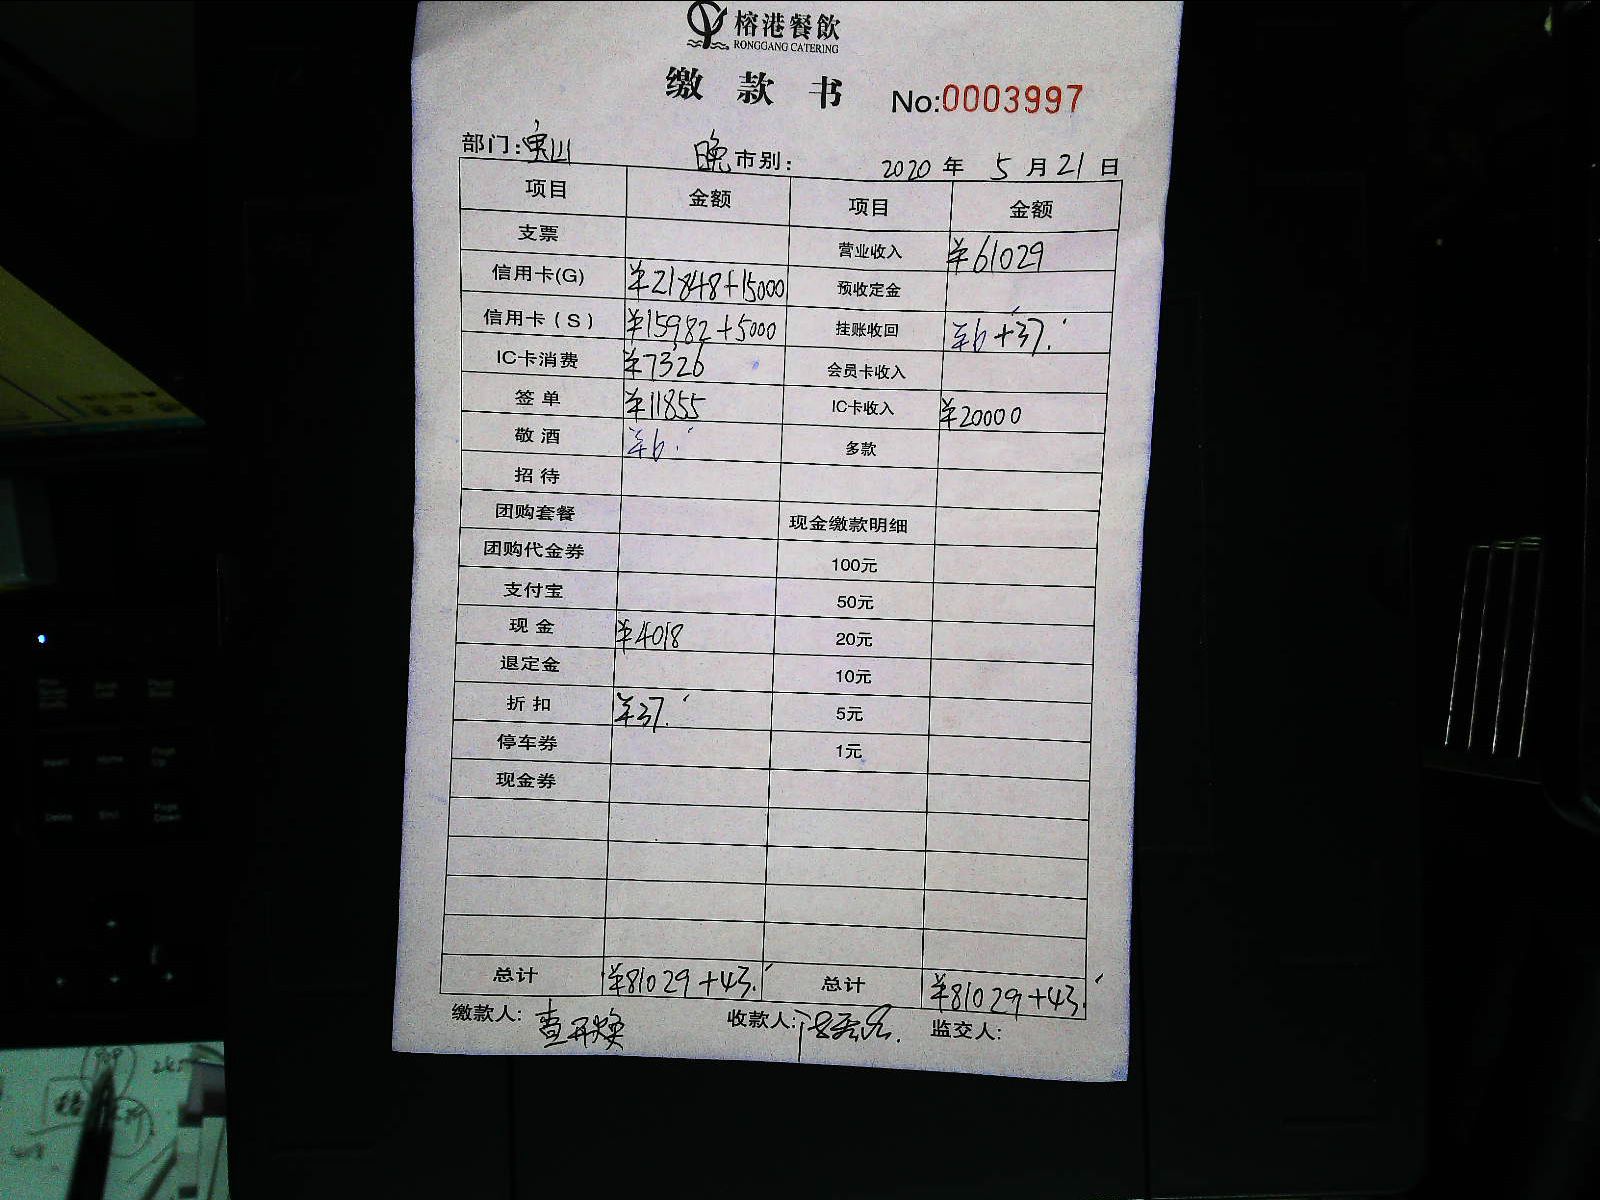 榕港餐飲
RONGGANG CATERING
缴款书 No:0003997
部门:宝山 晚市别: 2020年5月21日
项目 金额 项目 金额
支票 营业收入 ¥61029
信用卡(G) ¥21848+15000 预收定金
信用卡(S) ¥15982+5000 挂账收回 ¥6+37.
IC卡消费 ¥7326 会员卡收入
签单 ¥11855 IC卡收入 ¥20000
敬酒 ¥6. 多款
招待
团购套餐 现金缴款明细
团购代金券 100元
支付宝 50元
现金 ¥4018 20元
退定金 10元
折扣 ¥37. 5元
停车券 1元
现金券
总计 ¥81029+43. 总计 ¥81029+43.
缴款人: 收款人: 监交人:
Insert Home Page Up
Delete End Page Down